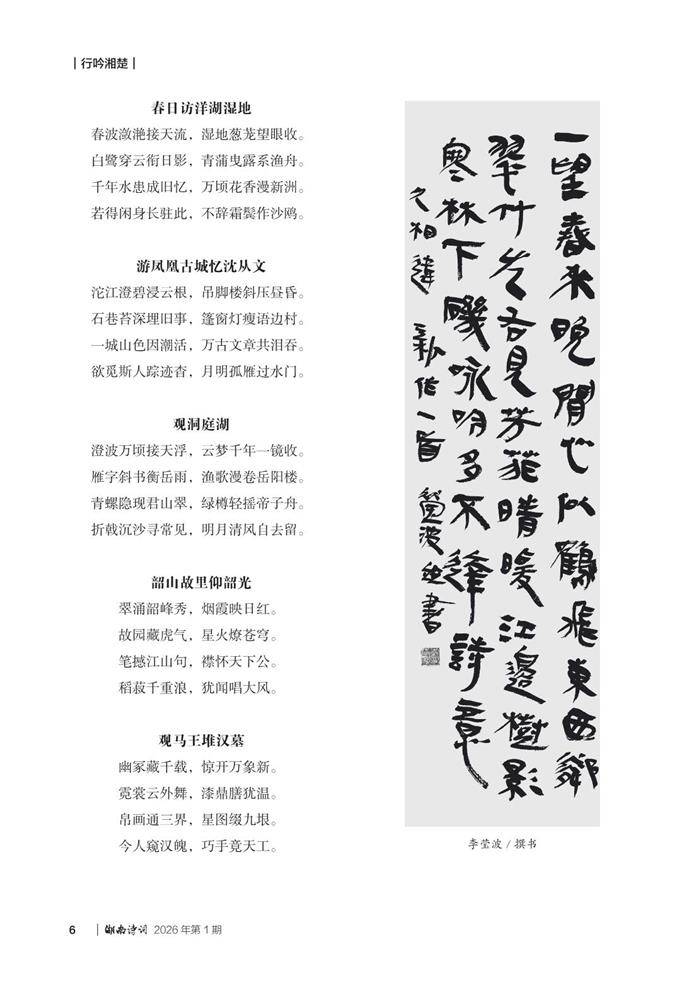 |行吟湘楚|
春日访洋湖湿地
春波潋滟接天流，湿地葱茏望眼收。
白鹭穿云衔日影，青蒲曳露系渔舟。
千年水患成旧忆，万顷花香漫新洲。
若得闲身长驻此，不辞霜鬓作沙鸥。
游凤凰古城忆沈从文
沱江澄碧浸云根，吊脚楼斜压昼昏。
石巷苔深埋旧事，篷窗灯瘦语边村。
一城山色因潮活，万古文章共泪吞。
欲觅斯人踪迹杳，月明孤雁过水门。
观洞庭湖
澄波万顷接天浮，云梦千年一镜收。
雁字斜书衡岳雨，渔歌漫卷岳阳楼。
青螺隐现君山翠，绿樽轻摇帝子舟。
折戟沉沙寻常见，明月清风自去留。
韶山故里仰韶光
翠涌韶峰秀，烟霞映日红。
故园藏虎气，星火燎苍穹。
笔撼江山句，襟怀天下公。
稻菽千重浪，犹闻唱大风。
观马王堆汉墓
幽冢藏千载，惊开万象新。
霓裳云外舞，漆鼎膳犹温。
帛画通三界，星图缀九垠。
今人窥汉魄，巧手竟天工。
一望春来晚闲心似鹤飞东西邻
翠竹左右见芳菲晴暖江边树影
寒林下畿咏吟多不逢诗意
久相逢 新作一首 莹波 书
李莹波 / 撰书
6 | 湖南诗词 2026 年第 1 期